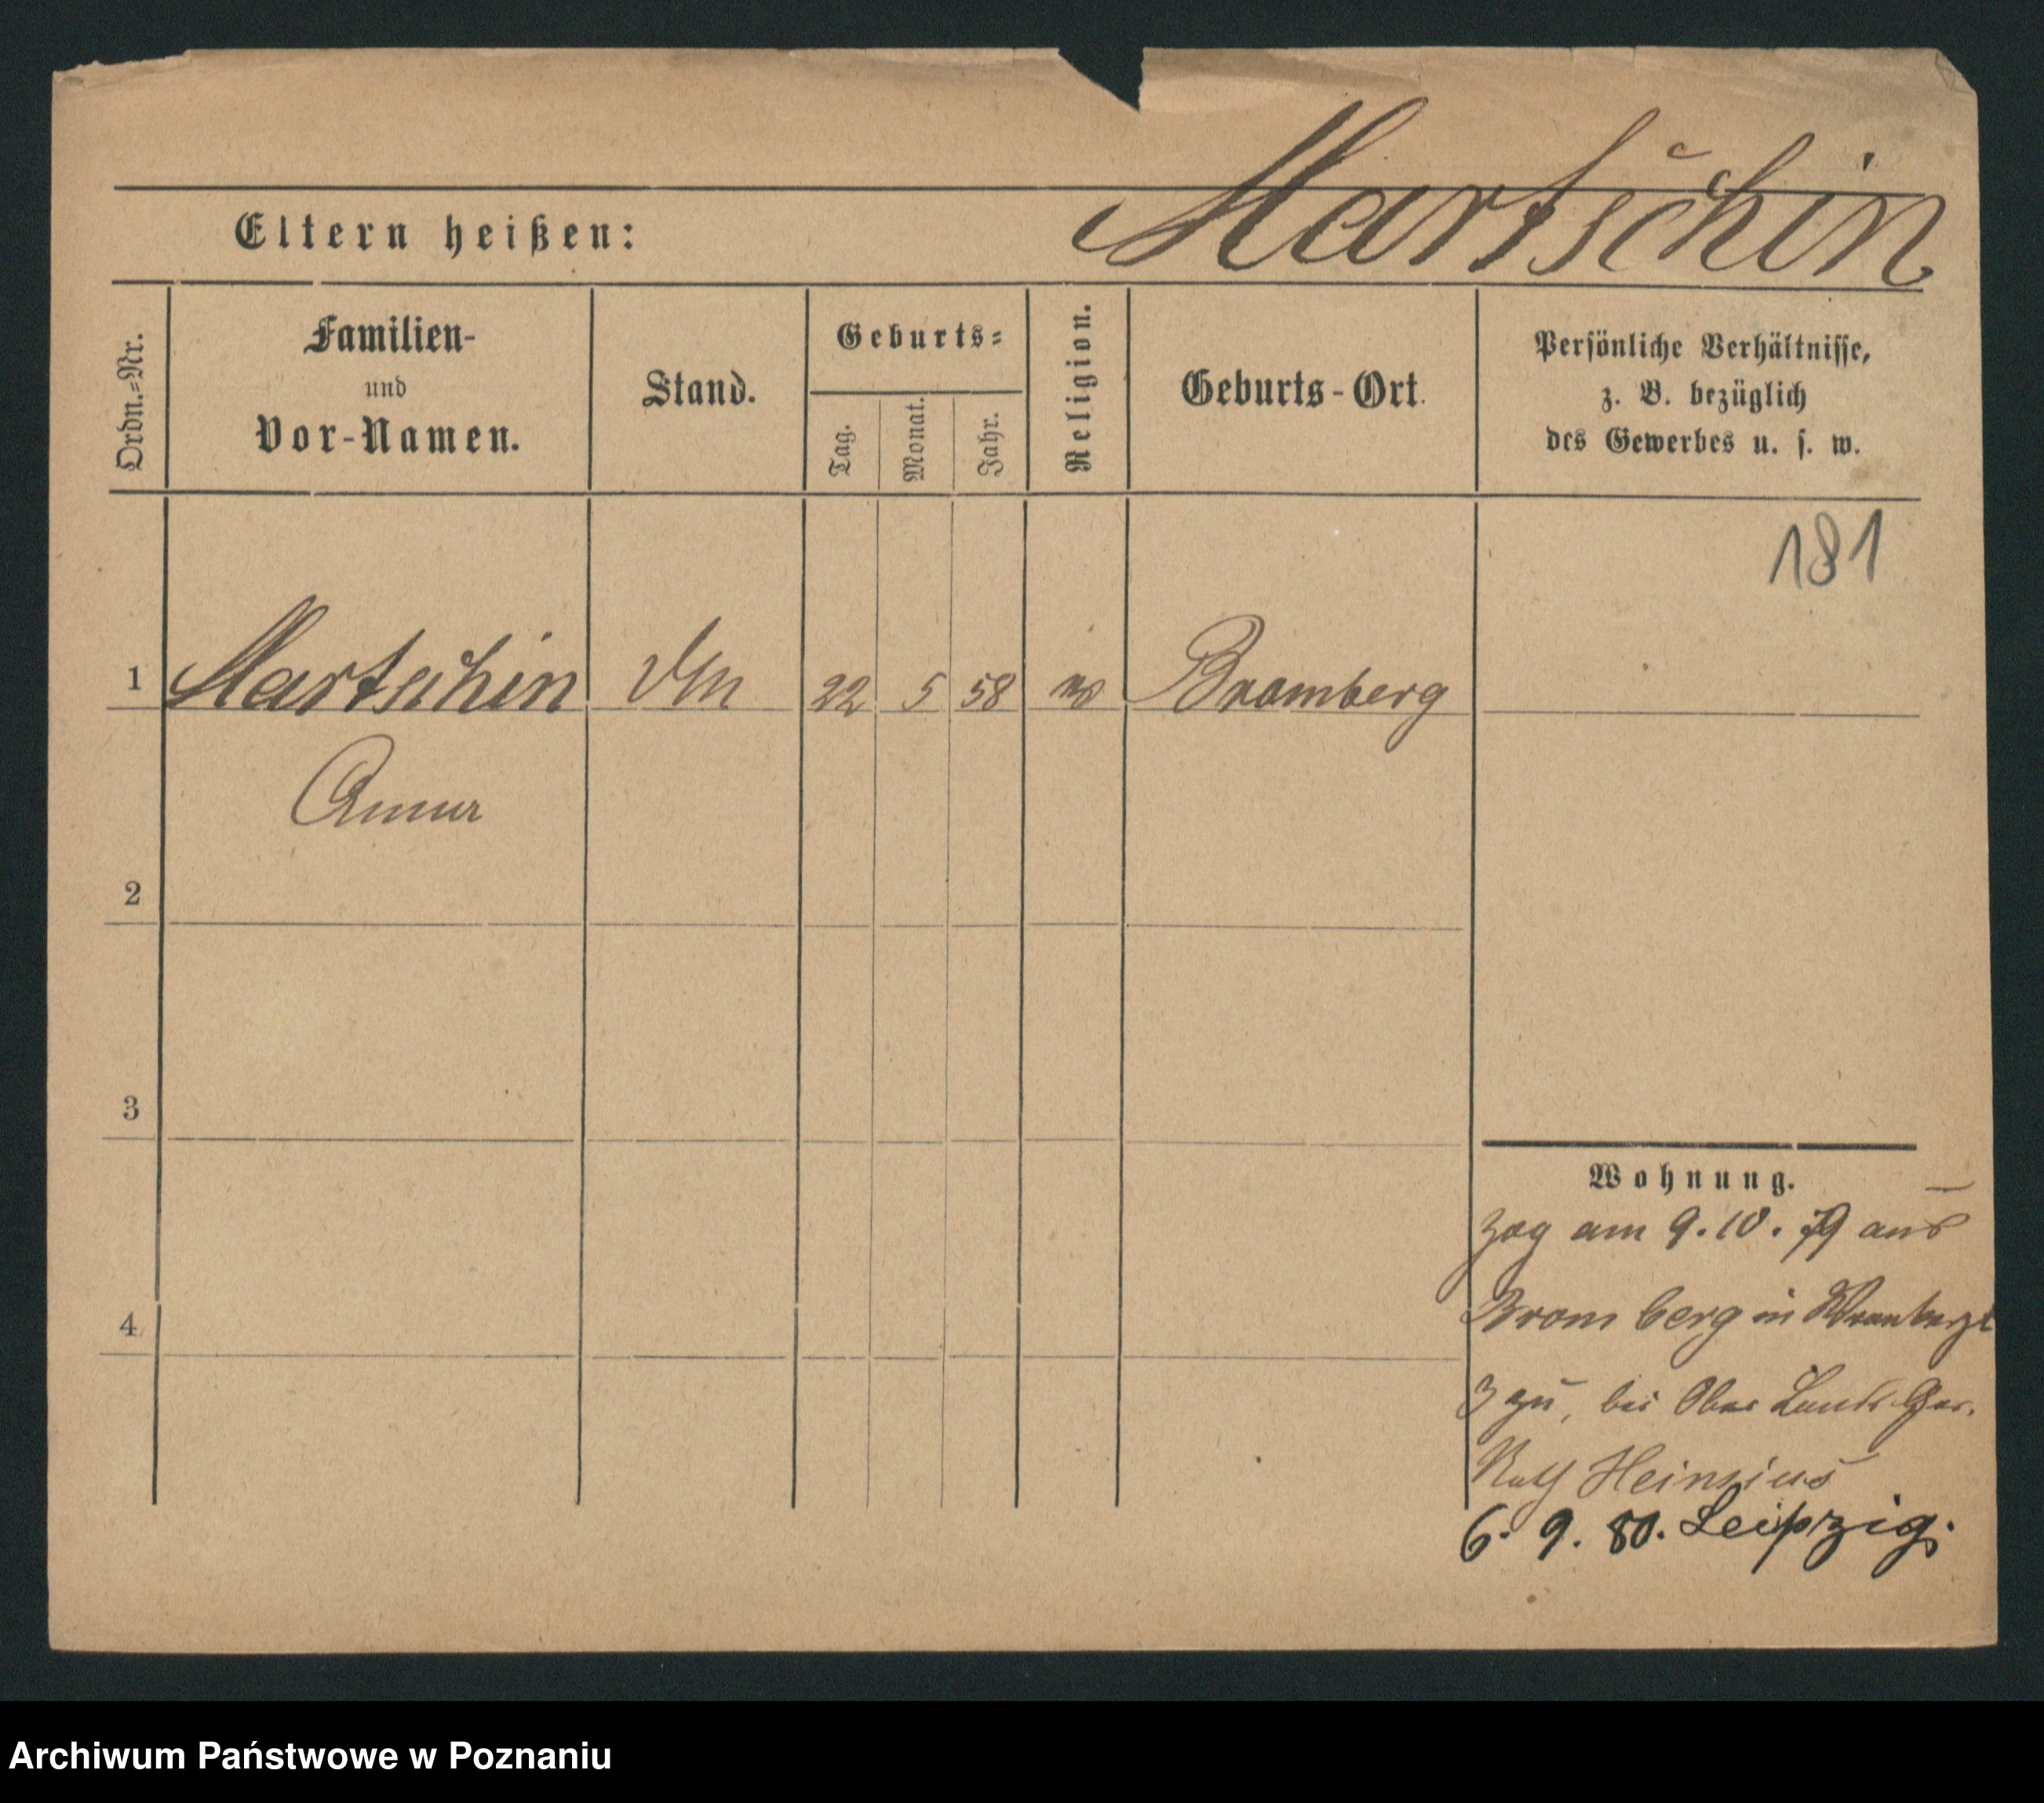 Martschin
Eltern heißen:
Ordn.=Nr.
Familien-
und
Vor-Namen.
Stand.
Geburts=
Tag.
Monat.
Jahr.
Religion.
Geburts-Ort.
Persönliche Verhältnisse,
z. B. bezüglich
des Gewerbes u. s. w.
181
1 Martschin 22 5 58 Bromberg
Anna
2
3
4
Wohnung.
zog am 9.10.79 aus
Bromberg in
3 zu, bei Ober Lands Ger.
Rath Heinsius
6. 9. 80. Leipzig.
Archiwum Państwowe w Poznaniu